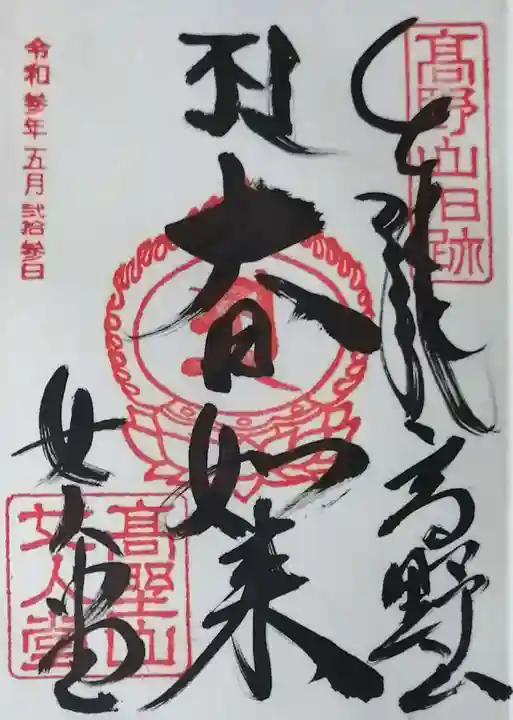 髙野山旧跡
奉拝 高野山
大日如来
女人堂
髙野山
女人堂
令和参年五月弐拾参日